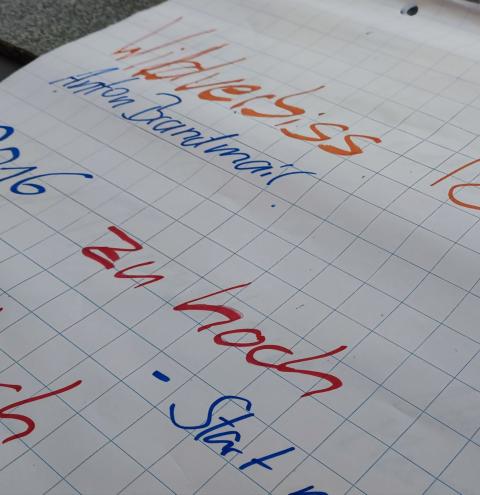 Wildverbiss
Anton Brandmair
2016
zu hoch
- Start